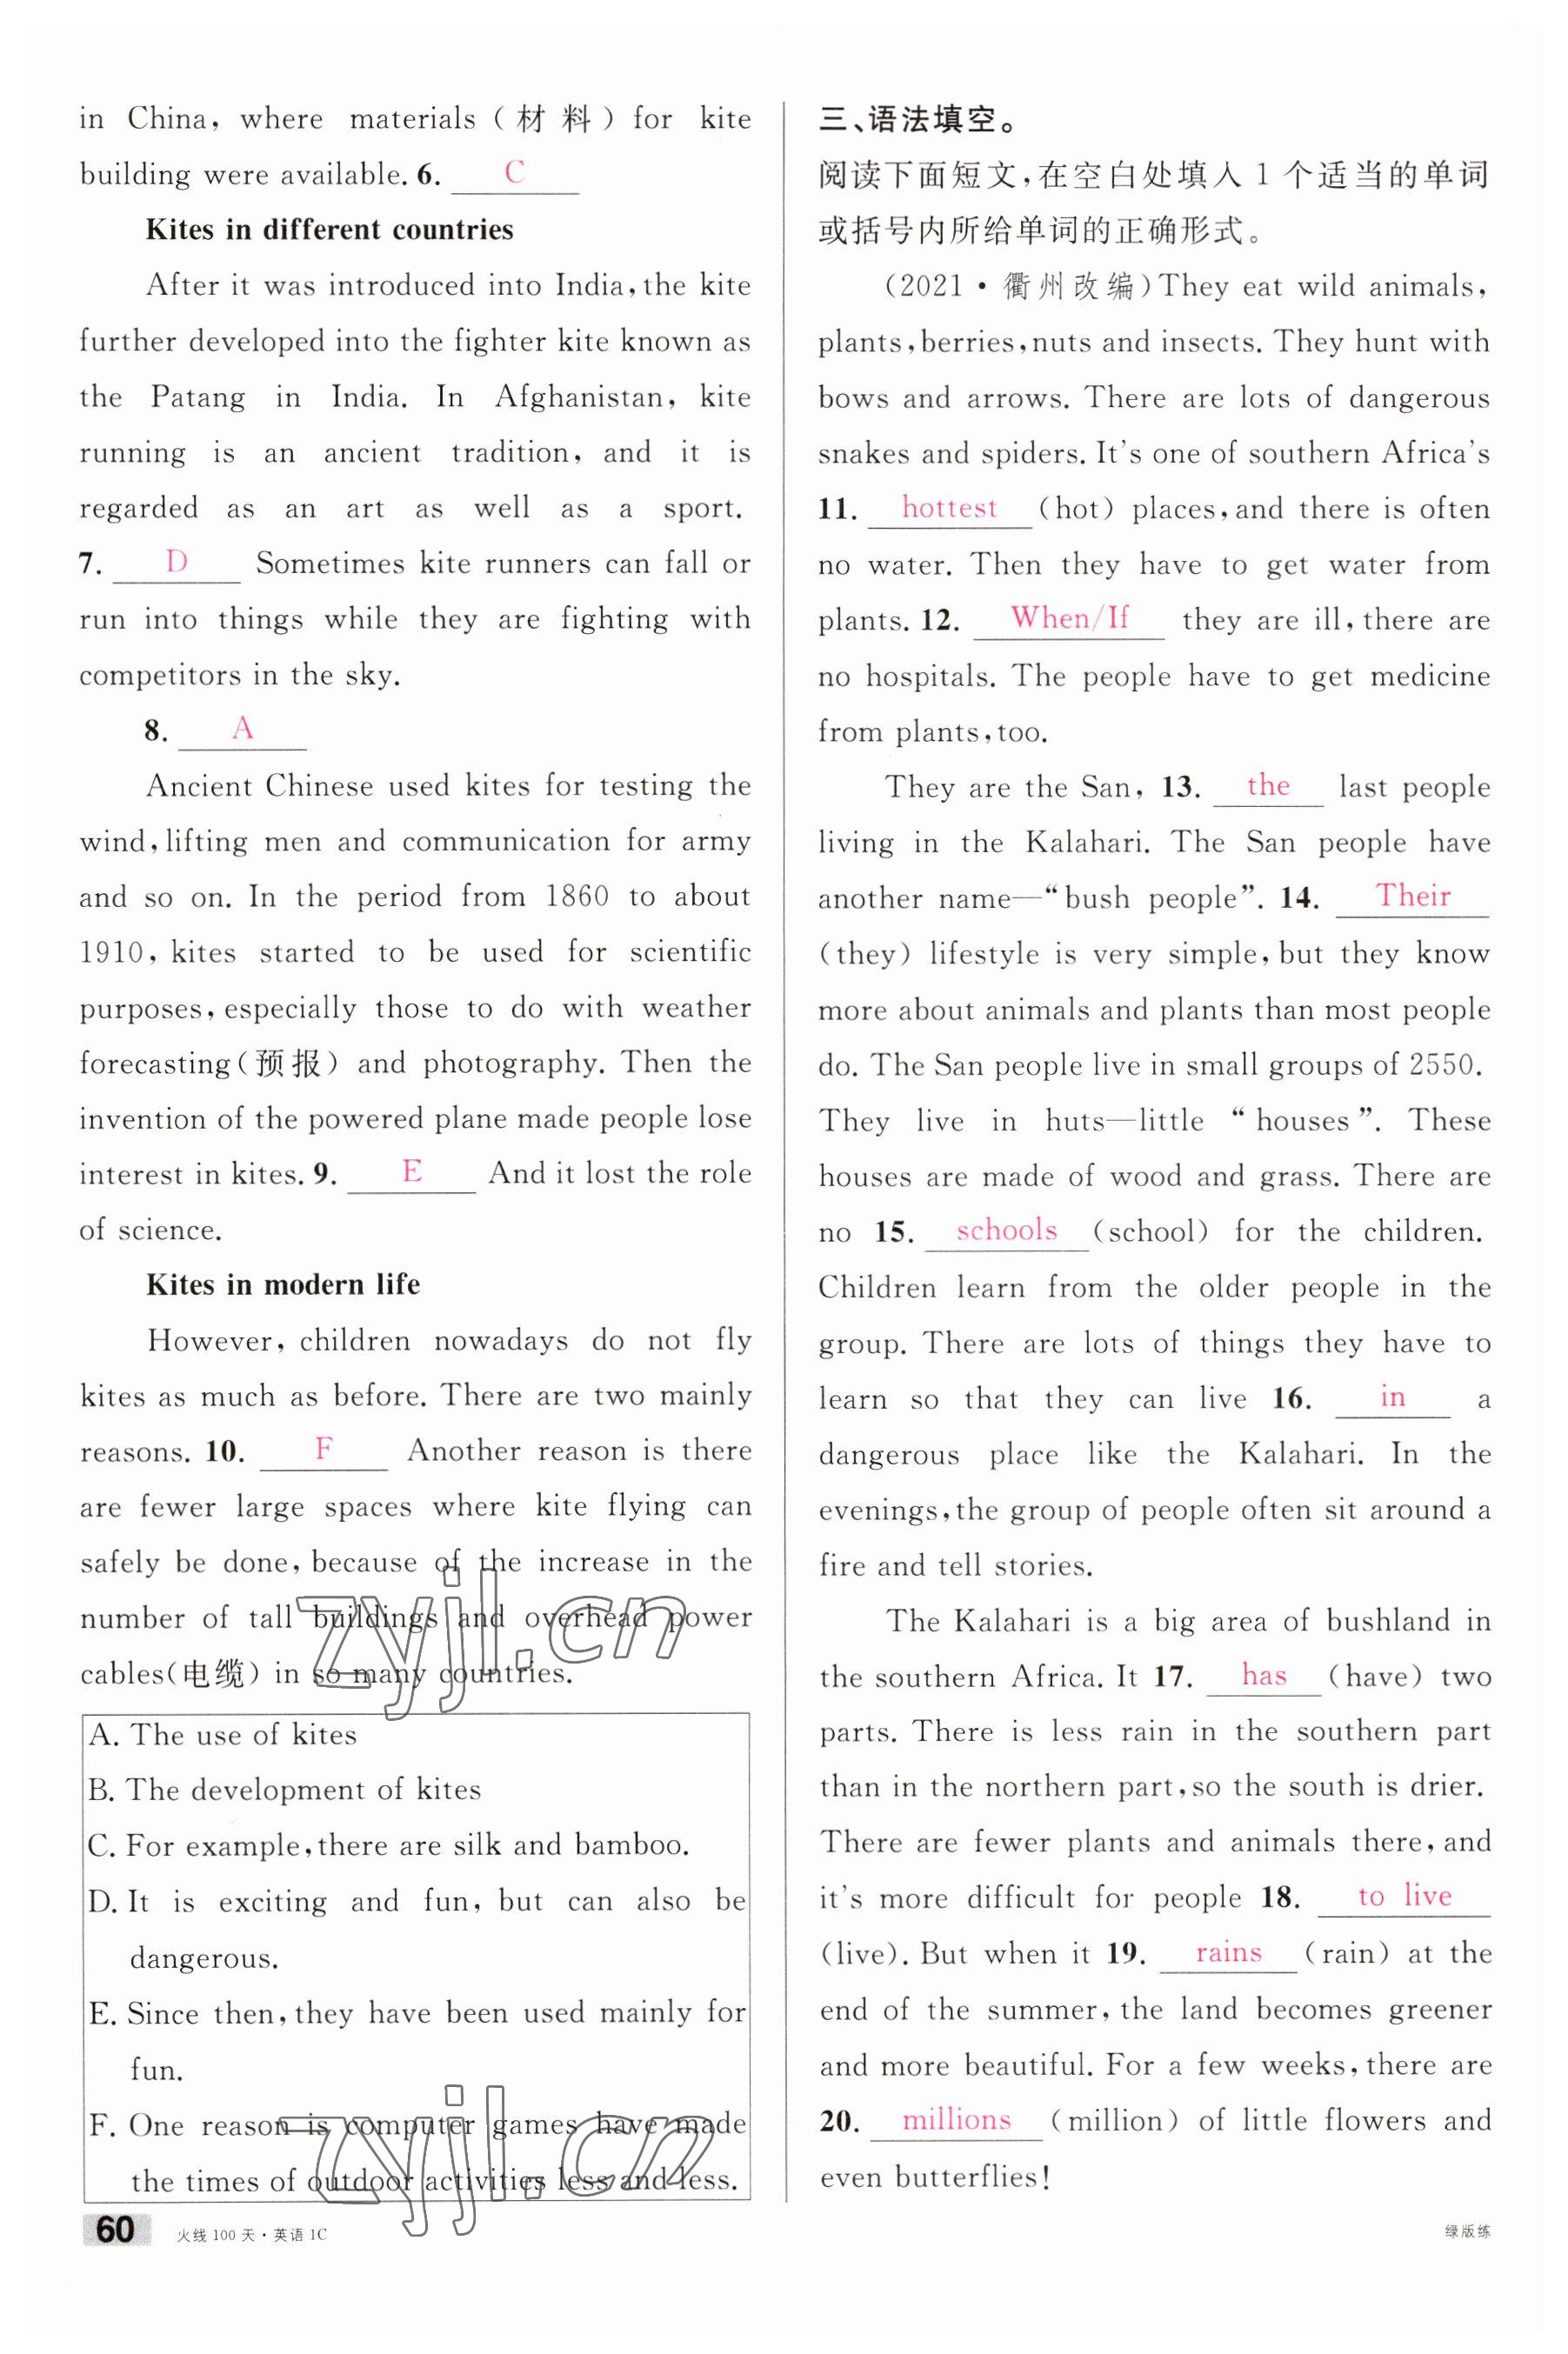 in China, where materials(材料) for kite
building were available. 6. C
Kites in different countries
After it was introduced into India, the kite
further developed into the fighter kite known as
the Patang in India. In Afghanistan, kite
running is an ancient tradition, and it is
regarded as an art as well as a sport.
7. D Sometimes kite runners can fall or
run into things while they are fighting with
competitors in the sky.
8. A
Ancient Chinese used kites for testing the
wind, lifting men and communication for army
and so on. In the period from 1860 to about
1910, kites started to be used for scientific
purposes, especially those to do with weather
forecasting(预报) and photography. Then the
invention of the powered plane made people lose
interest in kites. 9. E And it lost the role
of science.
Kites in modern life
However, children nowadays do not fly
kites as much as before. There are two mainly
reasons. 10. F Another reason is there
are fewer large spaces where kite flying can
safely be done, because of the increase in the
number of tall buildings and overhead power
cables(电缆) in so many countries.
zyjl.cn
A. The use of kites
B. The development of kites
C. For example, there are silk and bamboo.
D. It is exciting and fun, but can also be
dangerous.
E. Since then, they have been used mainly for
fun.
F. One reason is computer games have made
the times of outdoor activities less and less.
zyjl.cn
60 火线100天·英语1C
三、语法填空。
阅读下面短文,在空白处填入1个适当的单词
或括号内所给单词的正确形式。
(2021·衢州改编)They eat wild animals,
plants, berries, nuts and insects. They hunt with
bows and arrows. There are lots of dangerous
snakes and spiders. It's one of southern Africa's
11. hottest (hot) places, and there is often
no water. Then they have to get water from
plants. 12. When/If they are ill, there are
no hospitals. The people have to get medicine
from plants, too.
They are the San, 13. the last people
living in the Kalahari. The San people have
another name—“bush people”. 14. Their
(they) lifestyle is very simple, but they know
more about animals and plants than most people
do. The San people live in small groups of 2550.
They live in huts—little “houses”. These
houses are made of wood and grass. There are
no 15. schools (school) for the children.
Children learn from the older people in the
group. There are lots of things they have to
learn so that they can live 16. in a
dangerous place like the Kalahari. In the
evenings, the group of people often sit around a
fire and tell stories.
The Kalahari is a big area of bushland in
the southern Africa. It 17. has (have) two
parts. There is less rain in the southern part
than in the northern part, so the south is drier.
There are fewer plants and animals there, and
it's more difficult for people 18. to live
(live). But when it 19. rains (rain) at the
end of the summer, the land becomes greener
and more beautiful. For a few weeks, there are
20. millions (million) of little flowers and
even butterflies!
绿版练